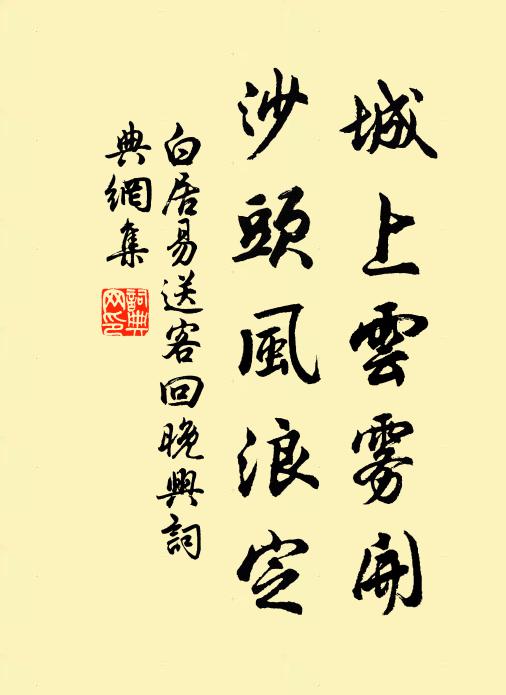 城上雲雾開
沙頭風浪定
白居易送客回晚興詞
典網集
詞典
网印